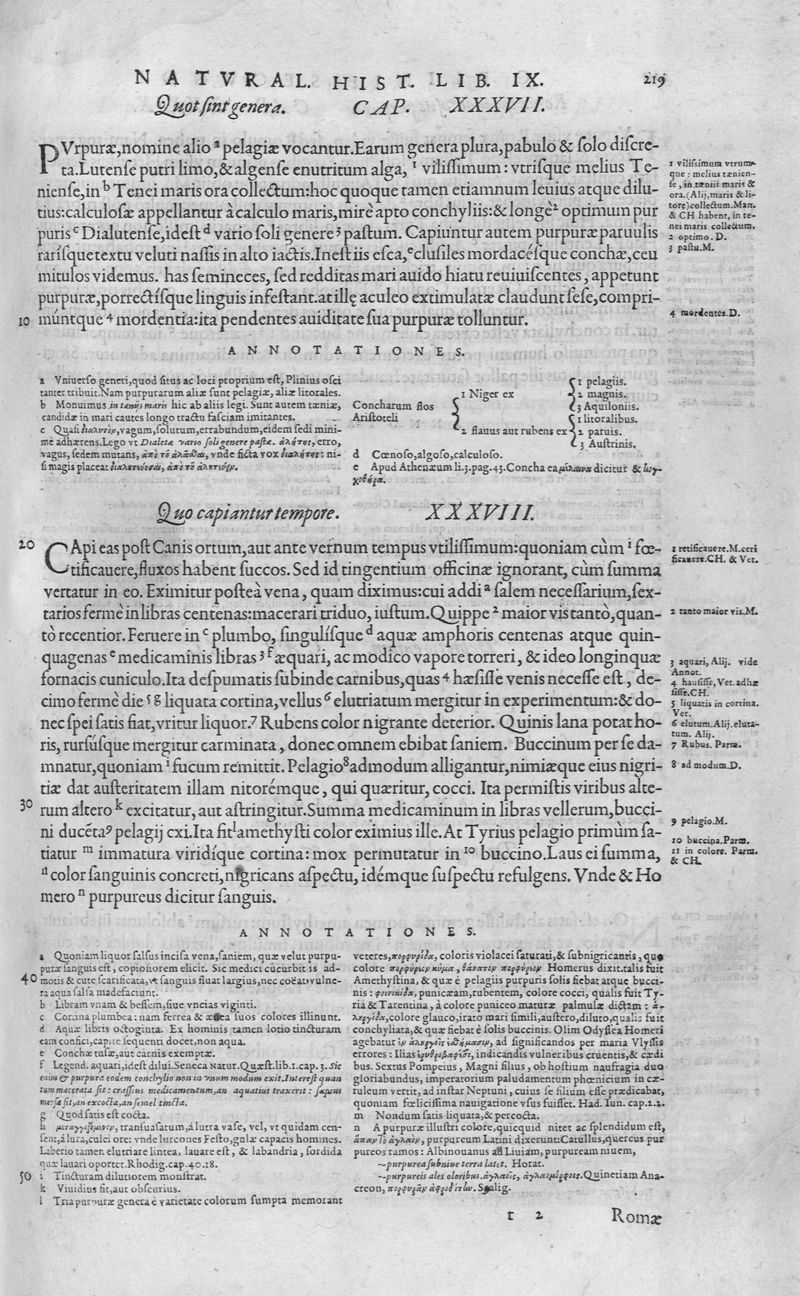 NATVRAL. HIST. LIB. IX. 219
Quot sint genera. CAP. XXXVII.
PVrpuræ, nomine alio ª pelagiæ vocantur. Earum genera plura, pabulo & solo discre-
ta. Lutense putri limo, & algense enutritum alga, ¹ vilissimum: vtrisque melius Te-
niense, in ᵇ Tenei maris ora collectum: hoc quoque tamen etiamnum leuius atque dilu-
tius: calculosæ appellantur à calculo maris, mirè apto conchyliis: & longè² optimum pur
puris ᶜ Dialutense, id est ᵈ vario soli genere ³ pastum. Capiuntur autem purpuræ paruulis
rarisque textu veluti nassis in alto iactis. Inest iis esca, ᵉclusiles mordacésque conchæ, ceu
mitulos videmus. has semineces, sed redditas mari auido hiatu reuiuiscentes, appetunt
purpuræ, porrectísque linguis infestant. at illę aculeo extimulatæ claudunt sese, compri-
10 múntque ⁴ mordentia: ita pendentes auiditate sua purpuræ tolluntur.
1 vilissimum vtrum-
que: melius tænien-
se, in tæniis maris &
ora. (Alij, maris & li-
tore) collectum. Man.
& CH habent, in te-
nei maris collectum.
2 optimo. D.
3 pastu. M.
4 mordentes. D.
ANNOTATIONES.
a Vniuerso generi, quod situs ac loci proprium est, Plinius osci
tanter tribuit. Nam purpurarum aliæ sunt pelagiæ, aliæ litorales.
b Monuimus in tænijs maris hic ab aliis legi. Sunt autem tæniæ,
candidæ in mari cautes longo tractu fasciam imitantes.
c Quasi διαλυτὸν, vagum, solutum, errabundum, eidem sedi mini-
mè adhærens. Lego vt Dialetæ vario soli genere pastæ. ἀλήτης, erro,
vagus, sedem mutans, ἀπὸ τοῦ ἀλᾶσθαι, vnde ficta vox διαλήτης: ni-
si magis placeat
Concharum flos
Aristoteli
1 Niger ex
1 pelagiis.
2 magnis.
3 Aquiloniis.
2 flauus aut rubens ex
1 litoralibus.
2 paruis.
3 Austrinis.
d Cœnoso, algoso, calculoso.
e Apud Athenæum li. 3. pag. 43. Concha ea μέλαινα dicitur &
Quo capiantur tempore. XXXVIII.
20 CApi eas post Canis ortum, aut ante vernum tempus vtilissimum: quoniam cùm ¹ fœ-
tificauere, fluxos habent succos. Sed id tingentium officinæ ignorant, cùm summa
vertatur in eo. Eximitur posteà vena, quam diximus: cui addi ª salem necessarium, sex-
tarios fermè in libras centenas: macerari triduo, iustum. Quippe ² maior vis tantò, quan-
tò recentior. Feruere in ᶜ plumbo, singulísque ᵈ aquæ amphoris centenas atque quin-
quagenas ᵉ medicaminis libras ³ ᶠ æquari, ac modico vapore torreri, & ideo longinquæ
fornacis cuniculo. Ita despumatis subinde carnibus, quas ⁴ hæsisse venis necesse est, de-
cimo fermè die ⁵ ᵍ liquata cortina, vellus ⁶ elutriatum mergitur in experimentum: & do-
nec spei satis fiat, vritur liquor. ⁷ Rubens color nigrante deterior. Quinis lana potat ho-
ris, rursúsque mergitur carminata, donec omnem ebibat saniem. Buccinum per se da-
mnatur, quoniam ⁱ fucum remittit. Pelagio ⁸ admodum alligantur, nimiæque eius nigri-
tiæ dat austeritatem illam nitorémque, qui quæritur, cocci. Ita permistis viribus alte-
30 rum altero ᵏ excitatur, aut astringitur. Summa medicaminum in libras vellerum, bucci-
ni ducéta ⁹ pelagij cxi. Ita fit ˡ amethysti color eximius ille. At Tyrius pelagio primùm sa-
tiatur ᵐ immatura viridíque cortina: mox permutatur in ¹⁰ buccino. Laus ei summa,
¹¹ color sanguinis concreti, nigricans aspectu, idémque suspectu refulgens. Vnde & Ho
mero ⁿ purpureus dicitur sanguis.
1 retificauere. M. ceri
ficauere. CH. & Vet.
2 tanto maior vis. M.
3 aquari, Alij. vide
Annot.
4 hausisse, Vet. adhæ
sisse. CH.
5 liquatis in cortina.
Vet.
6 elutum. Alij. eluta-
tum. Alij.
7 Rubus. Parm.
8 ad modum. D.
9 pelagio. M.
10 buccina. Parm.
11 in colore. Parm.
& CH.
ANNOTATIONES.
a Quoniam liquor salsus incisa vena, saniem, quæ velut purpu-
puræ sanguis est, copiosiorem elicit. Sic medici cucurbitis ad-
40 motis & cute scarificata, vt sanguis fluat largius, nec coëat, vulne-
ra aqua salsa madefaciunt.
b Libram vnam & bessem, siue vncias viginti.
c Cortina plumbea: nam ferrea & ærea suos colores illinunt.
d Aquæ libris octoginta. Ex hominis tamen lotio tincturam
eam confici, capite sequenti docet, non aqua.
e Conchæ tusæ, aut carnis exemptæ.
f Legend. aquari, id est dilui. Seneca Natur. Quæst. lib. 1. cap. 3. Sic
enim & purpura eodem conchylio non in vnum modum exit. Interest quan
tum macerata sit: crassius medicamentum, an aquatius traxerit: sæpius
mersa sit, an excocta, an semel tincta.
g Quod satis est cocta.
h transuasatum, à lutra vase, vel, vt quidam cen-
sent, à lura, culei ore: vnde lurcones Festo, gulæ capacis homines.
Laberio tamen elutriare lintea, lauare est, & labandria, sordida
quæ lauari oportet. Rhodig. cap. 40. 18.
50 i Tincturam dilutiorem monstrat.
k Viuidius fit, aut obscurius.
l Tria purpuræ genera è varietate colorum sumpta memorant
veteres, πορφυρίδα, coloris violacei saturati, & subnigricantis, quo
colore πορφύρεον κῦμα, θάνατον πορφύρεον Homerus dixit. talis fuit
Amethystina, & quæ è pelagiis purpuris solis fiebat atque bucci-
nis: φοινικίδα, puniceam, rubentem, colore cocci, qualis fuit Ty-
ria & Tarentina, à colore puniceo maturæ palmulæ dictam: ἁ-
λουργίδα, colore glauco, irato mari simili, austero, diluto, qualis fuit
conchyliata, & quæ fiebat è solis buccinis. Olim Odyssea Homeri
agebatur ἐν ἁλουργοῖς ἐσθήμασιν, ad significandos per maria Vlyssis
errores: Ilias indicandis vulneribus cruentis, & cædi
bus. Sextus Pompeius, Magni filius, ob hostium naufragia duo
gloriabundus, imperatorium paludamentum phœnicium in cæ-
ruleum vertit, ad instar Neptuni, cuius se filium esse prædicabat,
quoniam fœlicissima nauigatione vsus fuisset. Had. Iun. cap. 2. 2.
m Nondum satis liquata, & percocta.
n A purpuræ illustri colore, quicquid nitet ac splendidum est,
purpureum Latini dixerunt: Catullus, quercus pur
pureos ramos: Albinouanus ad Liuiam, purpuream niuem,
—purpurea sub niue terra latet. Horat.
—purpureis ales oloribus. Quinetiam Ana-
creon, Scalig.
t 2 Romæ